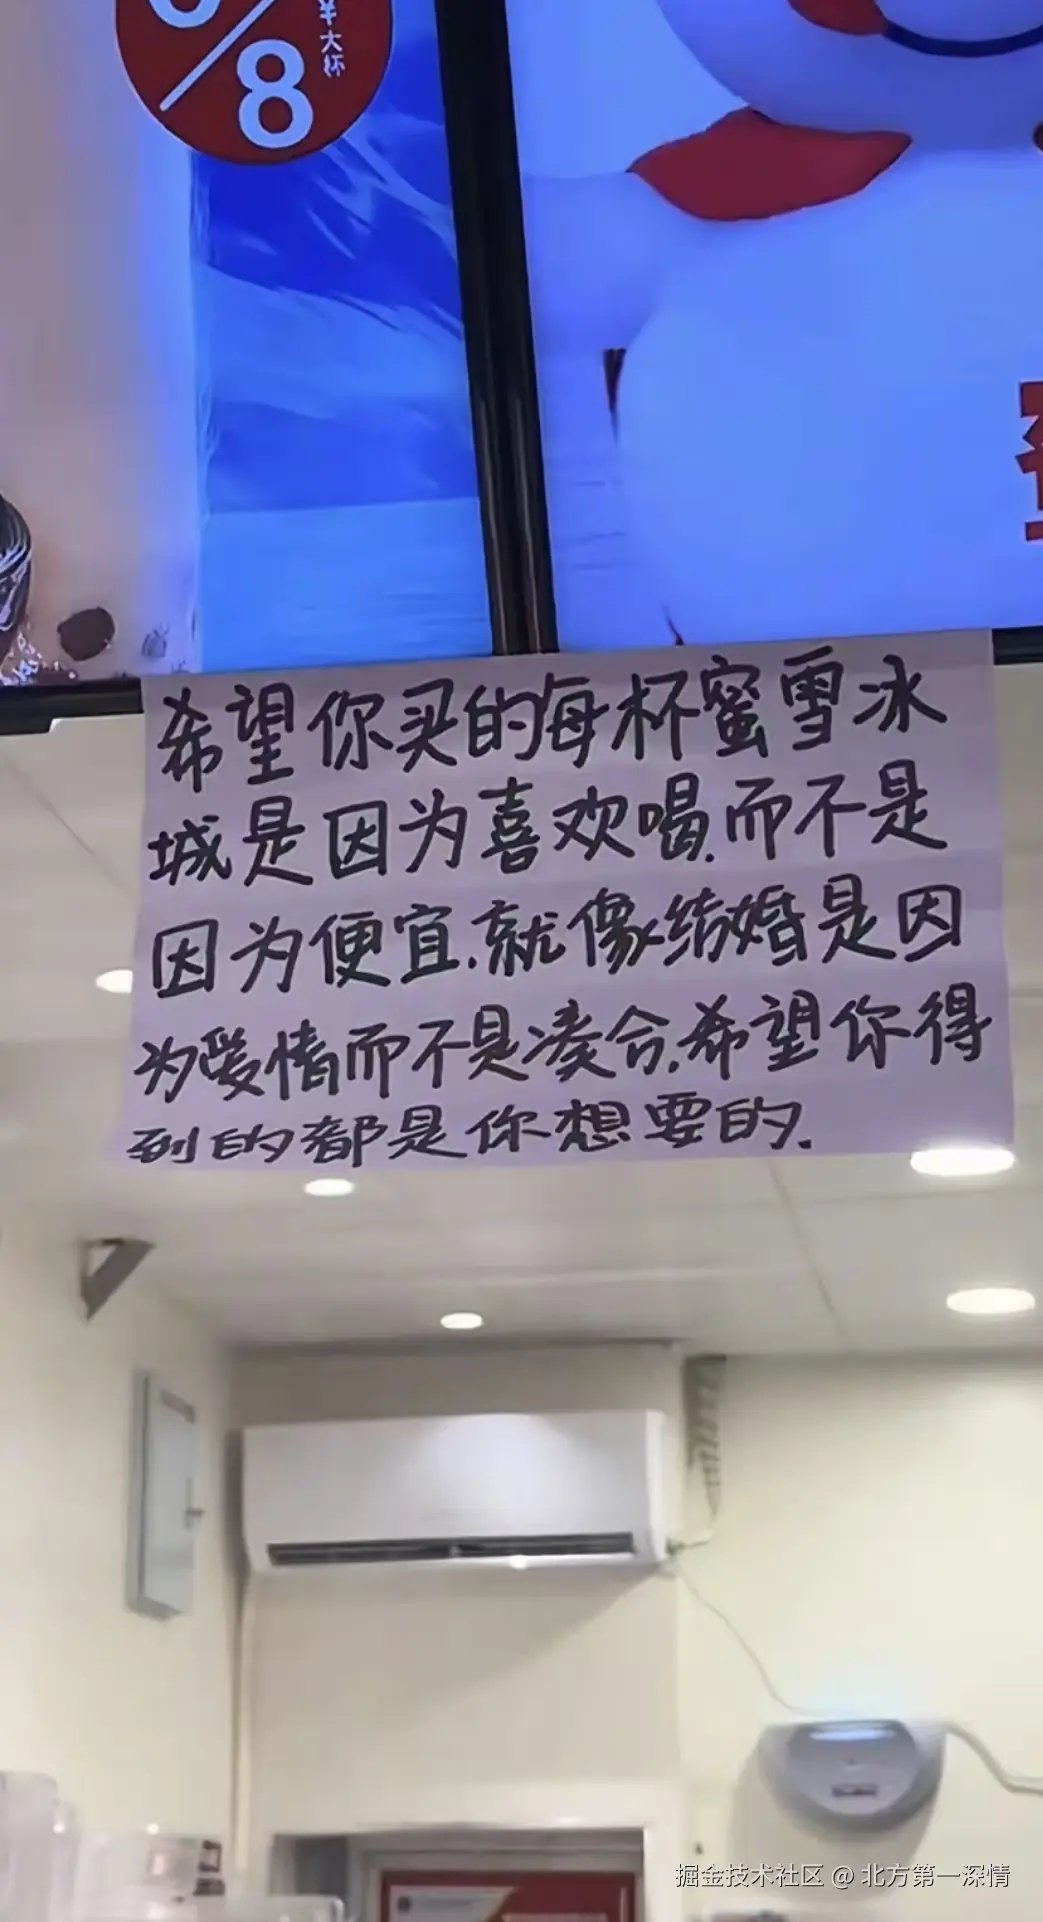 8
¥大杯
希望你买的每杯蜜雪冰
城是因为喜欢喝.而不是
因为便宜.就像结婚是因
为爱情而不是凑合.希望你得
到的都是你想要的.
掘金技术社区 @ 北方第一深情